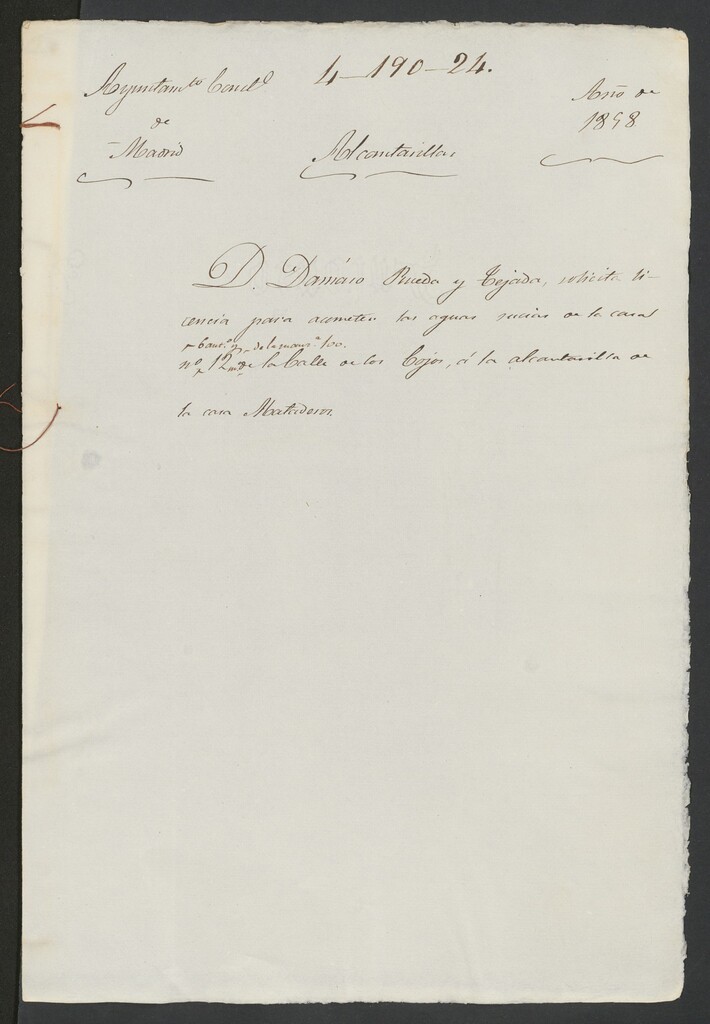 4-190-24.
Ayuntam.to Const.l
de
Madrid
Alcantarillas
Año de
1858
D. Damáso Rueda y Tejada, solicita li-
cencia para acometer las aguas sucias de la casa
6 ant.º y de la manz.ª 100.
nº 12 m.no de la Calle de los Cojos, á la alcantarilla de
la casa Matadero.